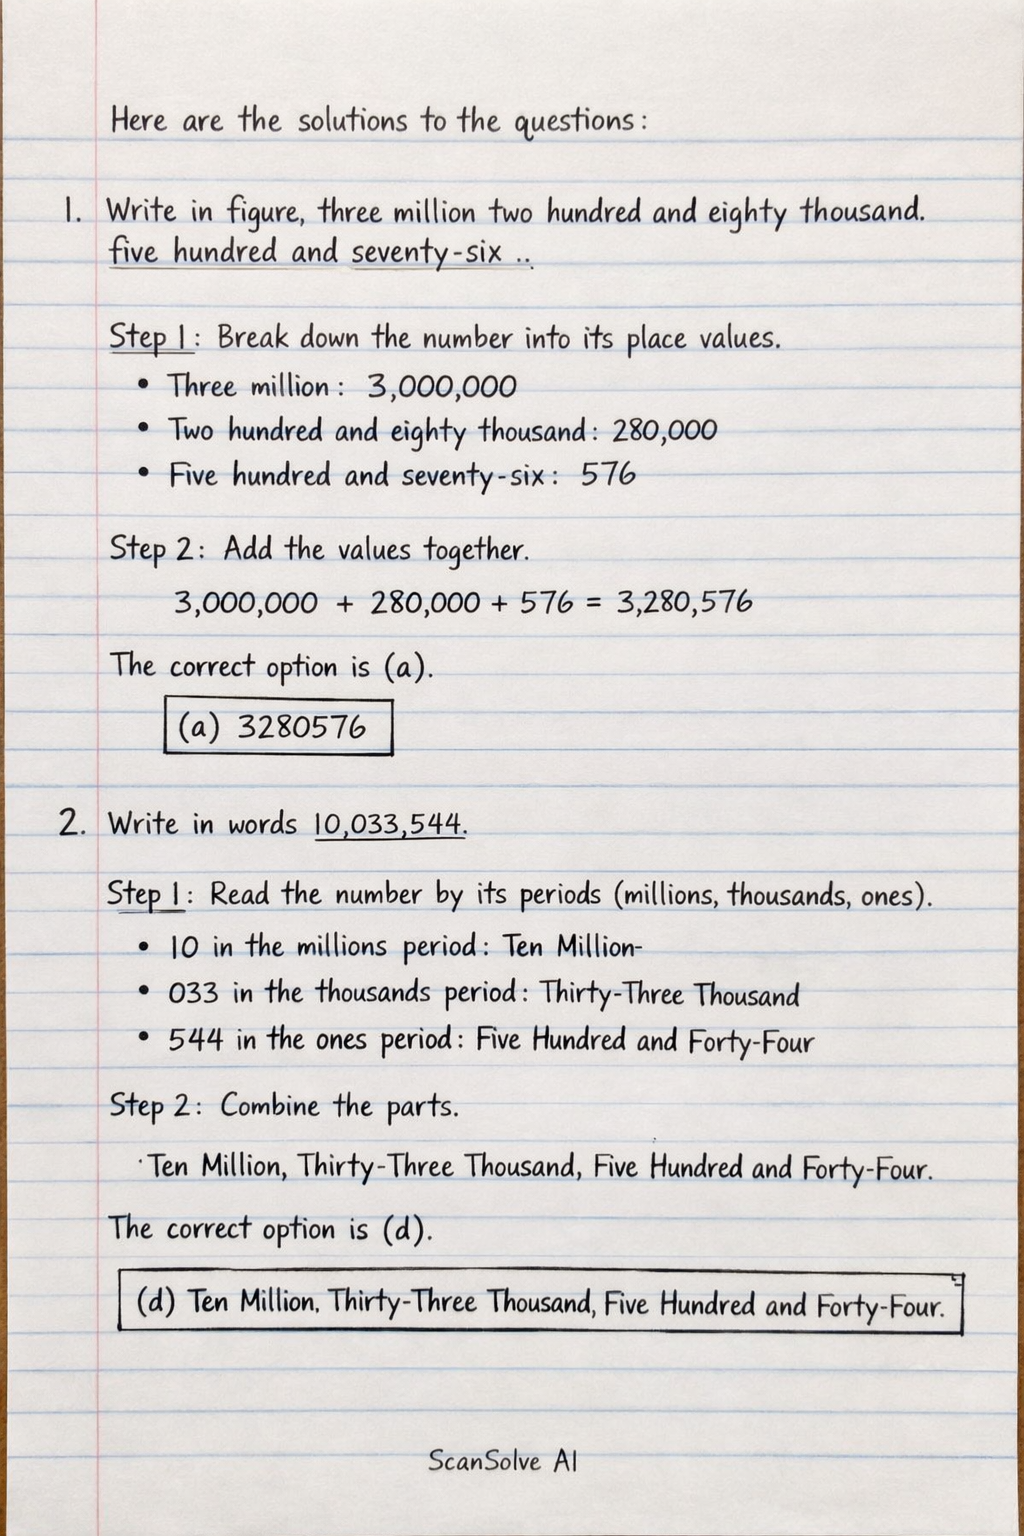 Here are the solutions to the questions:
1. Write in figure, three million two hundred and eighty thousand.
five hundred and seventy-six ..
Step 1: Break down the number into its place values.
• Three million: 3,000,000
• Two hundred and eighty thousand: 280,000
• Five hundred and seventy-six: 576
Step 2: Add the values together.
3,000,000 + 280,000 + 576 = 3,280,576
The correct option is (a).
(a) 3280576
2. Write in words 10,033,544.
Step 1: Read the number by its periods (millions, thousands, ones).
• 10 in the millions period: Ten Million-
• 033 in the thousands period: Thirty-Three Thousand
• 544 in the ones period: Five Hundred and Forty-Four
Step 2: Combine the parts.
·Ten Million, Thirty-Three Thousand, Five Hundred and Forty-Four.
The correct option is (d).
(d) Ten Million. Thirty-Three Thousand, Five Hundred and Forty-Four.
ScanSolve AI